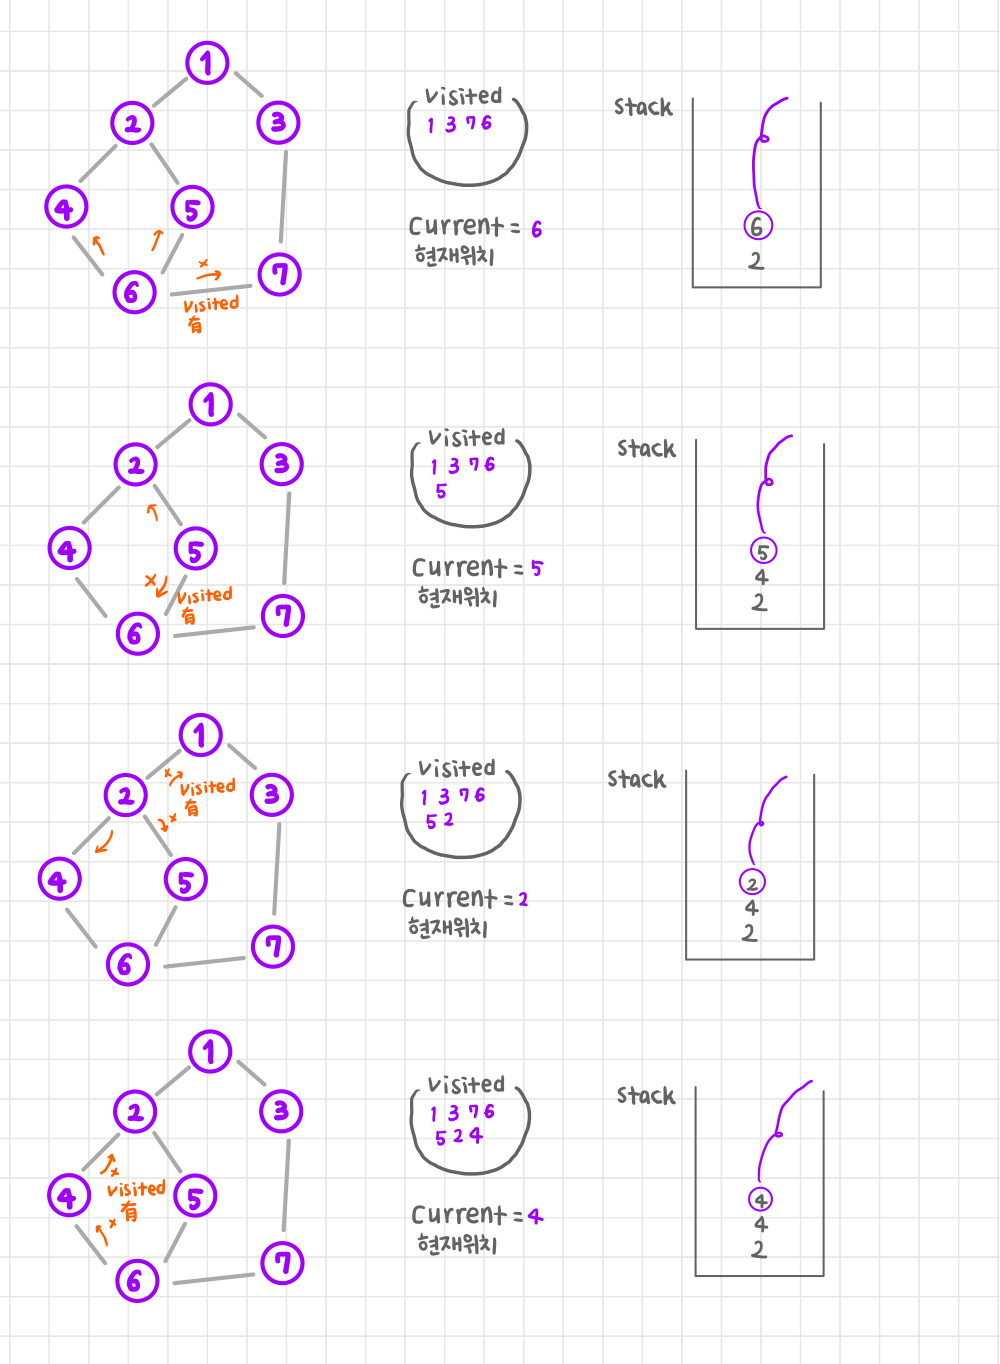 1
2
3
4
5
6
7
x
visited
有
visited
1 3 7 6
Current = 6
현재위치
Stack
6
2
1
2
3
4
5
6
7
x
visited
有
visited
1 3 7 6
5
Current = 5
현재위치
Stack
5
4
2
1
2
3
4
5
6
7
x
visited
有
x
visited
1 3 7 6
5 2
Current = 2
현재위치
Stack
2
4
2
1
2
3
4
5
6
7
x
visited
有
x
visited
1 3 7 6
5 2 4
Current = 4
현재위치
Stack
4
4
2